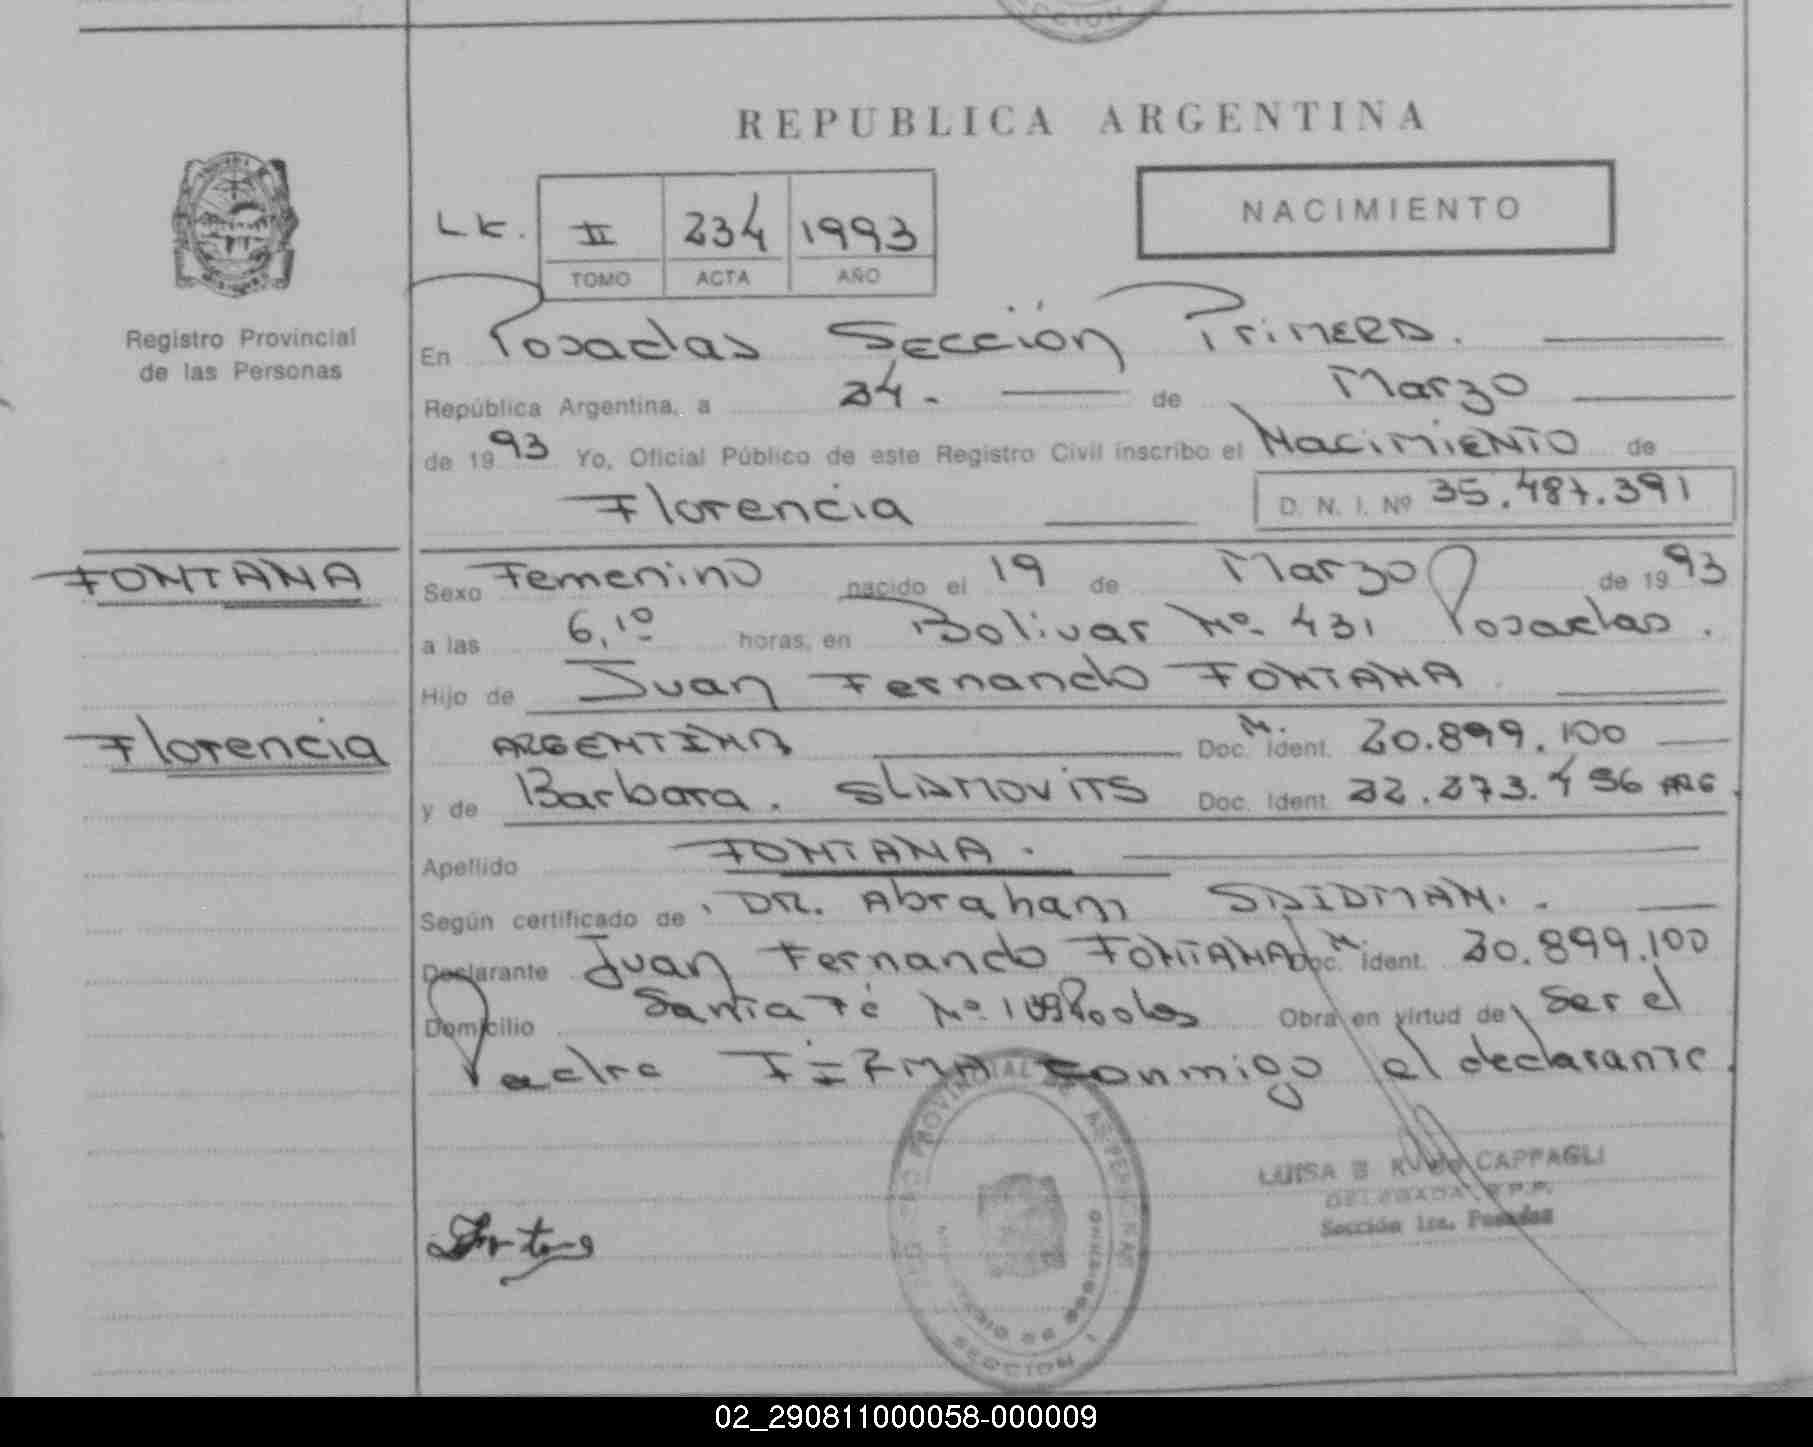 REPUBLICA ARGENTINA
NACIMIENTO
LK. II 234 1993
TOMO ACTA AÑO
Registro Provincial
de las Personas
En Posadas Sección Primera.
República Argentina, a 24. de Marzo
de 1993 Yo, Oficial Público de este Registro Civil inscribo el Nacimiento de
Florencia D. N. I. Nº 35.487.391
FONTANA
Sexo Femenino nacido el 19 de Marzo de 1993
a las 6,10 horas, en Bolivar Nº 431 Posadas.
Hijo de Juan Fernando FONTANA
Florencia
ARGENTINA Doc. M. Ident. 20.899.100
y de Barbara. Doc. Ident. 22.273.456 ARG.
Apellido FONTANA.
Según certificado de DR. Abraham
Declarante Juan Fernando FONTANA Doc. M. Ident. 20.899.100
Domicilio Santa Fé Nº Obra en virtud de Ser el
Padre FIRMA conmigo el declarante.
LUISA CAPPAGLI
DELEGADA
Sección 1ra. Posadas
SECCION 1
02_290811000058-000009